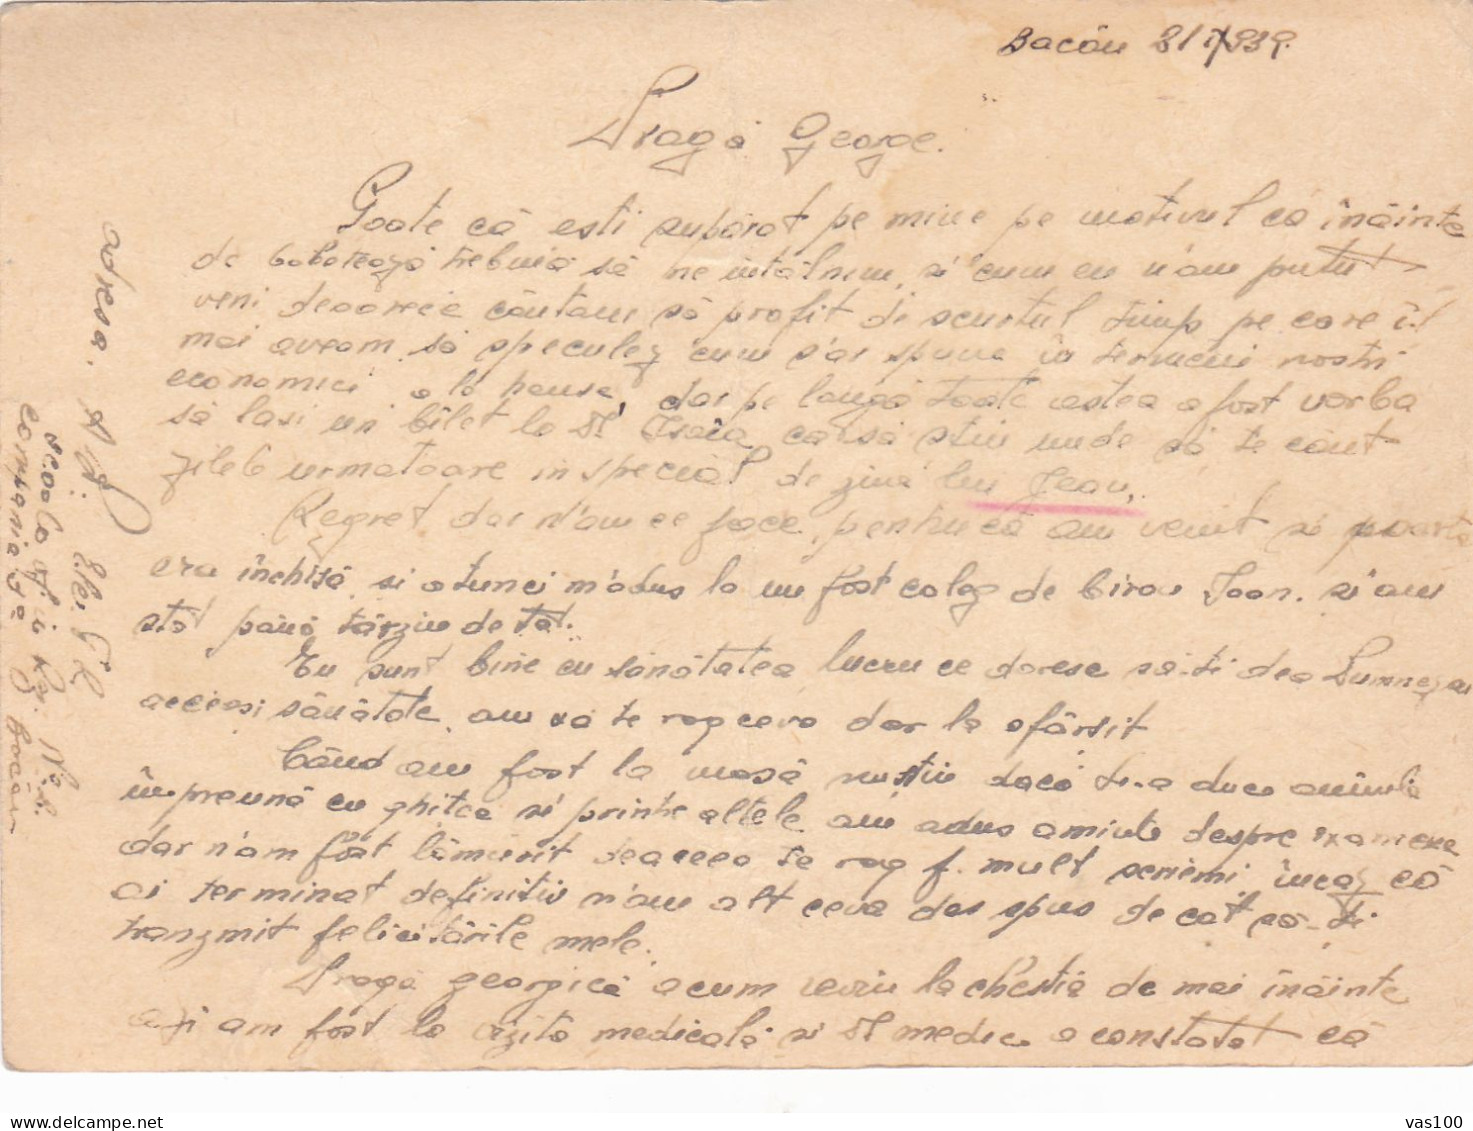 Bacău 8/I/939.
Dragă George.
Poate că ești supărat pe mine pe motivul că înainte
de bobotează trebuia să ne întâlnim, și cum eu n'am putut
veni deoarece căutam să profit de scurtul timp pe care îl
mai aveam, să speculez cum s'ar spune în termeni noștri
economici a la hausse, dar pe lângă toate astea a fost vorba
să lași un bilet la Dl Isaia, ca să știu unde să te caut
zilele urmatoare în special de ziua lui Jean,
Regret dar n'am ce face, pentrucă am venit și poarta
era închisă și atunci m'adus la un fost coleg de birou Ioan. și am
stat până târziu de tot.
Eu sunt bine cu sănătatea, lucru ce doresc să-ți dea Dumnezeu
aceeași sănătate, am să te rog ceva dar la sfârșit
Când am fost la masă nu știu dacă ți-a aduci aminte
împreună cu ghiță și printre altele am adus aminte despre examene
dar n'am fost lămurit deaceea te rog f. mult scriemi, încaz că
ai terminat definitiv n'am alt ceva des spus de cat să-ți
tranzmit felicitările mele.
Dragă georgică acum reviu la chestia de mai înainte
azi am fost la vizita medicală și Dl medic a constatat că
adresa.
școala
compania
Bacău